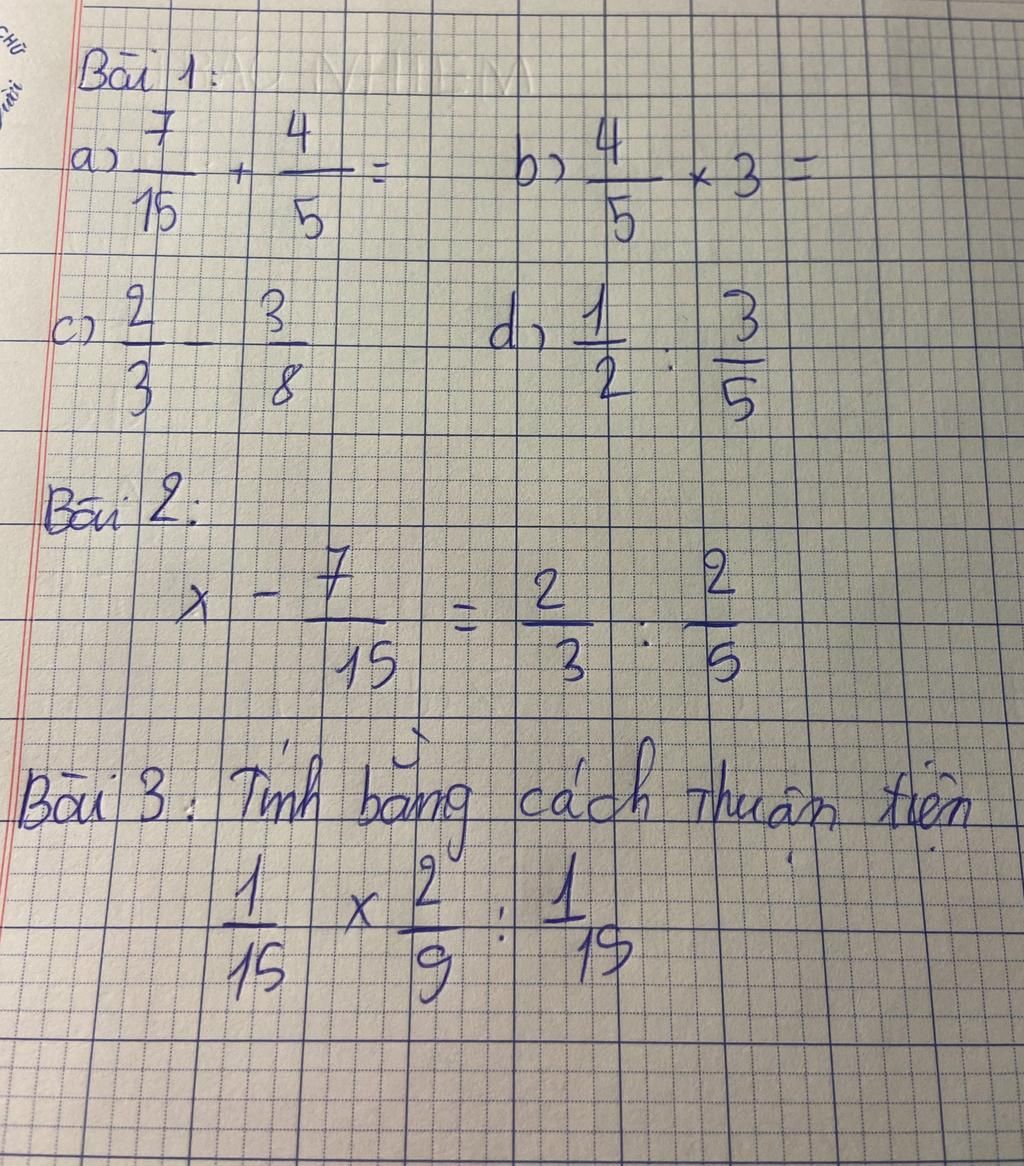 CHỮ
Bài 1:
a) 7/15 + 4/5 = b) 4/5 × 3 =
c) 2/3 - 3/8 d) 1/2 : 3/5
Bài 2:
x - 7/15 = 2/3 : 2/5
Bài 3: Tính bằng cách thuận tiện
1/15 × 2/9 : 1/15